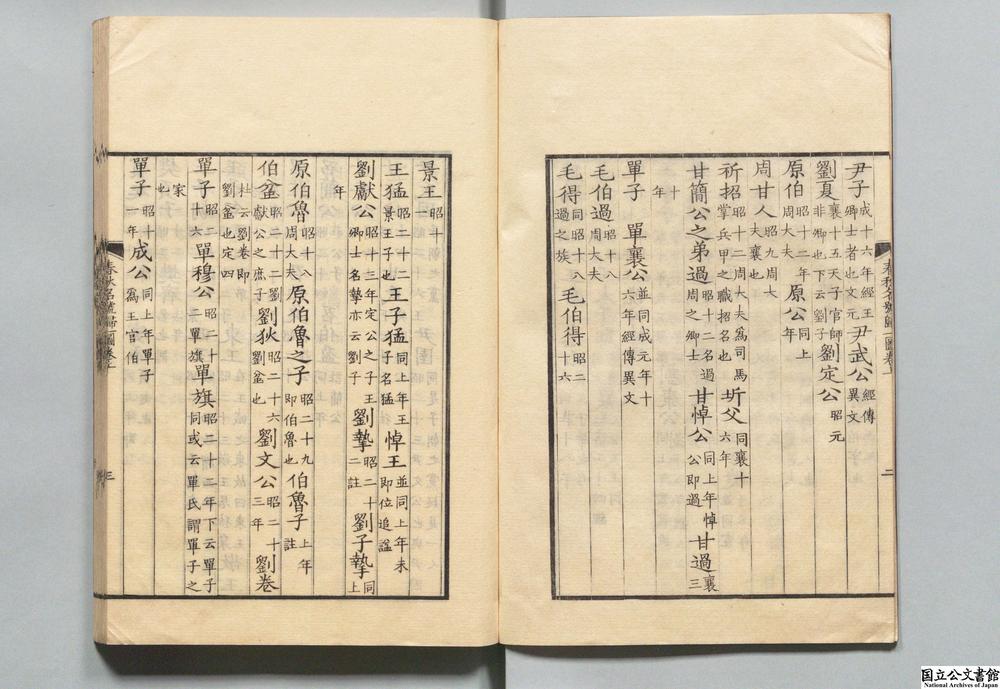 尹子成十六年經王卿士者也文元尹武公經傳異文
劉夏襄十五天子官師非卿也下云劉子劉定公昭元
原伯昭十二年周大夫原公同上年
周甘人昭九周大夫襄也
祈招昭十二周大夫為司馬掌兵甲之職招名也圻父同襄十六年
甘簡公之弟過昭十二名過周之卿士甘悼公同上年悼公即過甘過襄三
十年
單子 單襄公並同成元年十六年經傳異文
毛伯過昭十八周大夫
毛得同昭十八過之族毛伯得昭二十六
春秋名號歸一圖卷上
二
景王昭十
王猛昭二十二景王子也王子猛同上年王子名猛悼王並同上年未即位追謚
劉獻公昭十三年定公之子王卿士名摯亦云劉子劉摯昭二十二註劉子摯同上
年
原伯魯昭十八周大夫原伯魯之子昭二十九即伯魯也伯魯子上年註
伯蚠昭二十二劉獻公之庶子劉狄昭二十六劉蚠也劉文公昭二十三年劉卷
杜云劉卷即劉蚠也定四
單子昭二十六單穆公昭二十二單旗單旗昭二十二年下云單子同或云單氏謂單子之
家也
單子昭十一年成公同上年單子為王官伯
春秋名號歸一圖卷上
三
国立公文書館
National Archives of Japan